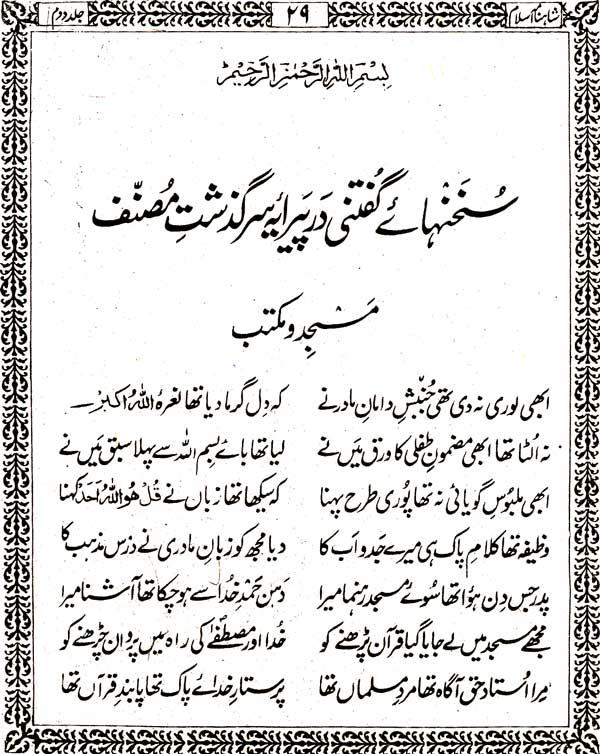 شاہنامہ اسلام ۲۹ جلد دوم
بِسْمِ اللہِ الرَّحْمٰنِ الرَّحِیْمِ
سُخَنہائے گُفتنی دَر پَیرایۂ سرگذشتِ مُصنّف
مَسجِد و مکتب
ابھی لوری نہ دی تھی جُنبشِ دامانِ مادر نے کہ دِل گرما دیا تھا نعرۂ اللہُ اکبر نے
نہ اُلٹا تھا ابھی مضمونِ طِفلی کا ورق مَیں نے لیا تھا بائے بِسم اللہ سے پہلا سبق مَیں نے
ابھی ملبُوسِ گویائی نہ تھا پُوری طرح پہنا کہ سیکھا تھا زباں نے قُلْ ھُوَ اللہُ اَحَد کہنا
وظیفہ تھا کلامِ پاک ہی میرے جَد و اَب کا دیا مجھ کو زبانِ مادری نے درسِ مذہب کا
پدر جس دن ہُوا تھا سُوئے مسجد رہنما میرا دہن حمدِ خُدا سے ہو چکا تھا آشنا میرا
مجھے مسجد میں لے جایا گیا قرآن پڑھنے کو خُدا اور مصطفےٰؐ کی راہ میں پروان چڑھنے کو
مِرا اُستاد حق آگاہ تھا مردِ مسلماں تھا پرستارِ خدائے پاک تھا پابندِ قرآں تھا